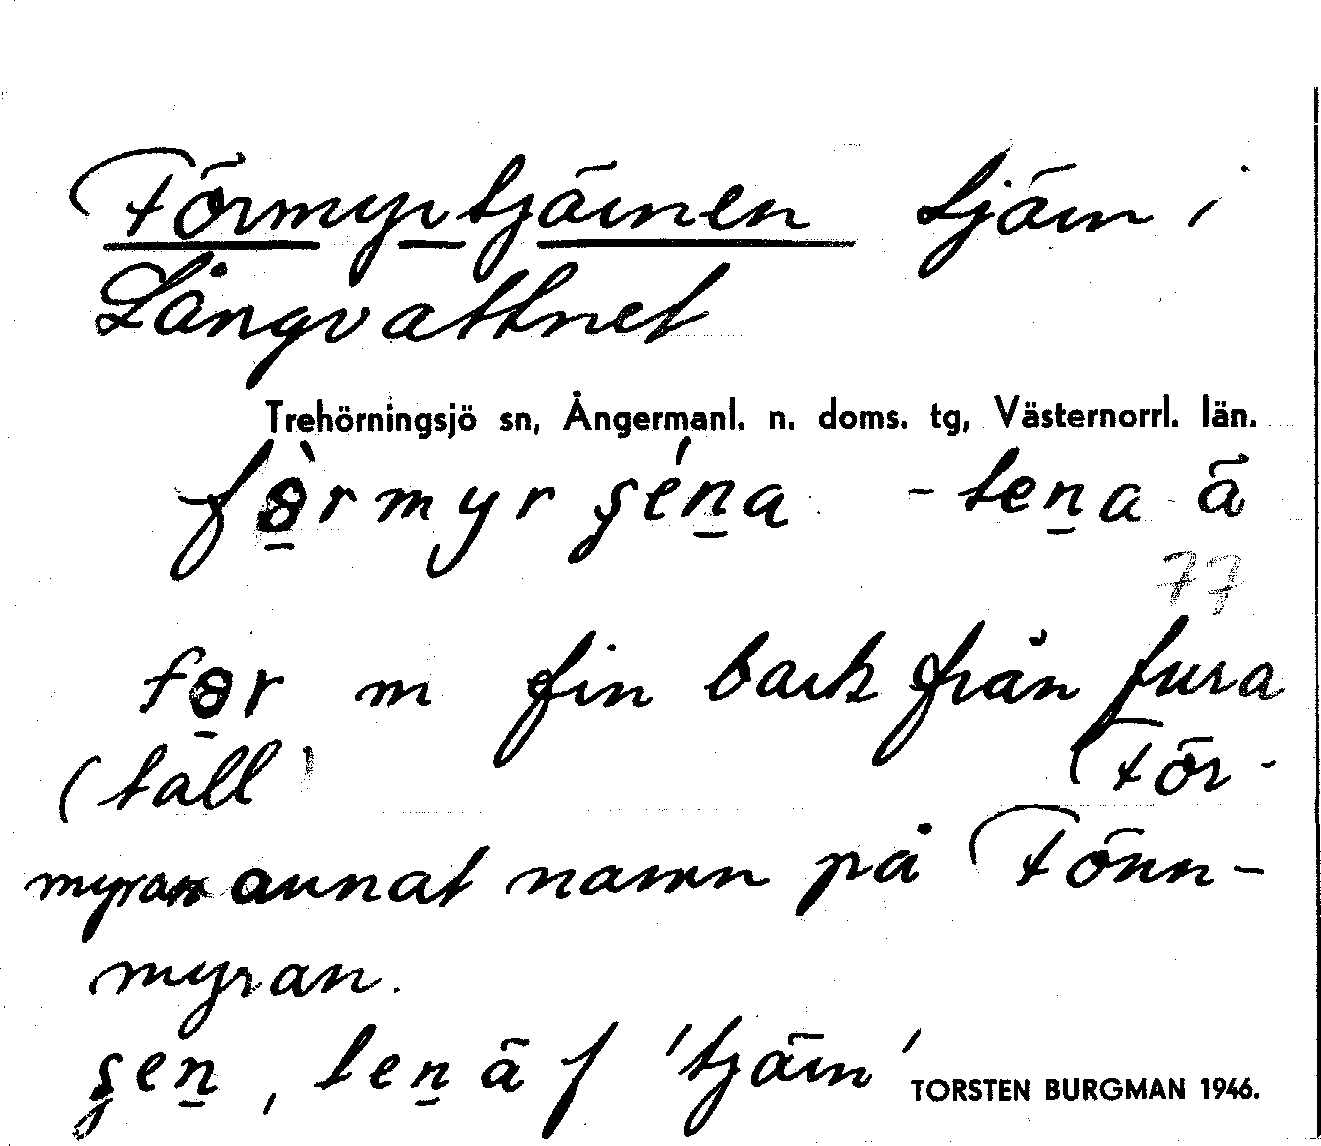 Förmyrtjärnen tjärn i
Långvattnet
Trehörningsjö sn, Ångermanl. n. doms. tg, Västernorrl. län.
-tena ä
77
m fin bark från fura
(tall) För-
myran annat namn på Fönn-
myran.
ten ä f 'tjärn'
TORSTEN BURGMAN 1946.